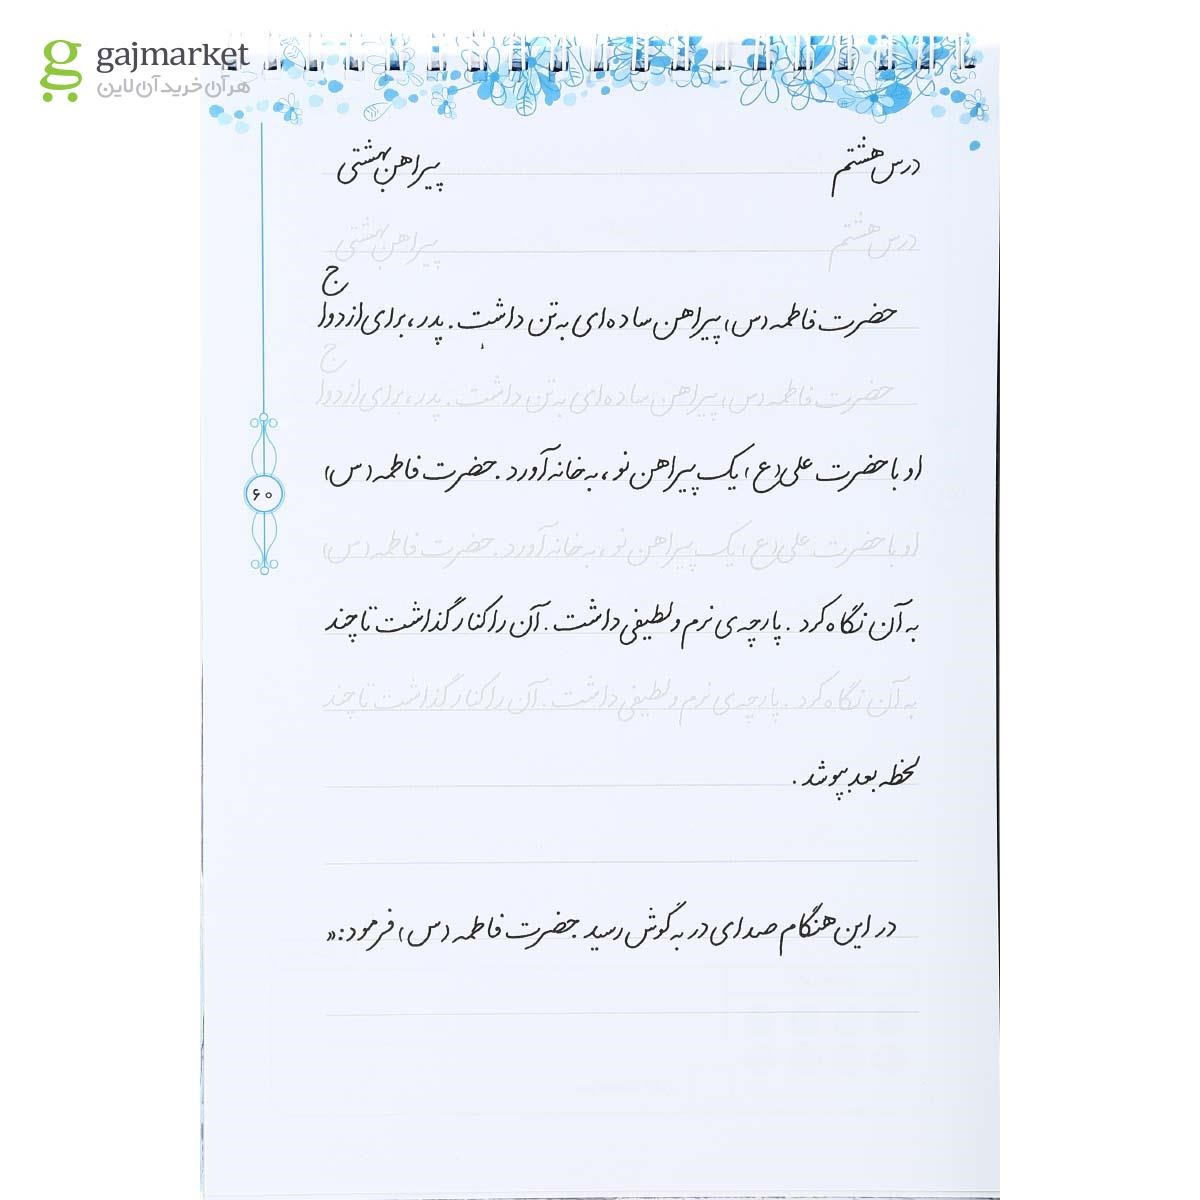 gajmarket
هر آن خرید آن لاین
درس هشتم پیراهن بهشتی
درس هشتم پیراهن بهشتی
حضرت فاطمه (س) پیراهن ساده‌ای به تن داشت. پدر، برای ازدواج
حضرت فاطمه (س) پیراهن ساده‌ای به تن داشت. پدر، برای ازدواج
او با حضرت علی (ع) یک پیراهن نو، به خانه آورد. حضرت فاطمه (س)
او با حضرت علی (ع) یک پیراهن نو، به خانه آورد. حضرت فاطمه (س)
۶۰
به آن نگاه کرد. پارچه‌ی نرم و لطیفی داشت. آن را کنار گذاشت تا چند
به آن نگاه کرد. پارچه‌ی نرم و لطیفی داشت. آن را کنار گذاشت تا چند
لحظه بعد بپوشد.
در این هنگام صدای در به گوش رسید. حضرت فاطمه (س) فرمود: «